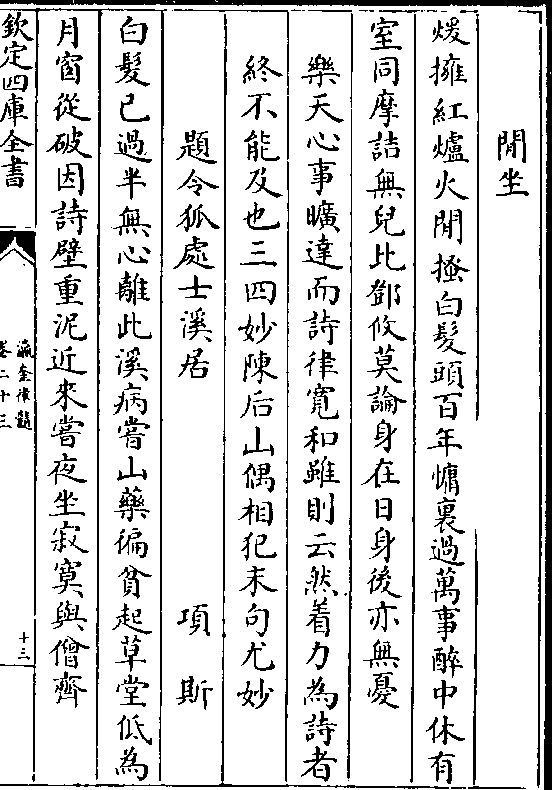 閒坐
煖擁紅爐火閒搔白髮頭百年慵裏過萬事醉中休有
室同摩詰無兒比鄧攸莫論身在日身後亦無憂
樂天心事曠達而詩律寛和雖則云然着力為詩者
終不能及也三四妙陳后山偶相犯末句尤妙
題令狐處士溪居 項斯
白髮已過半無心離此溪病嘗山藥徧貧起草堂低為
月窗從破因詩壁重泥近來嘗夜坐寂寞與僧齊
欽定四庫全書
瀛奎律髓
卷二十三
十三